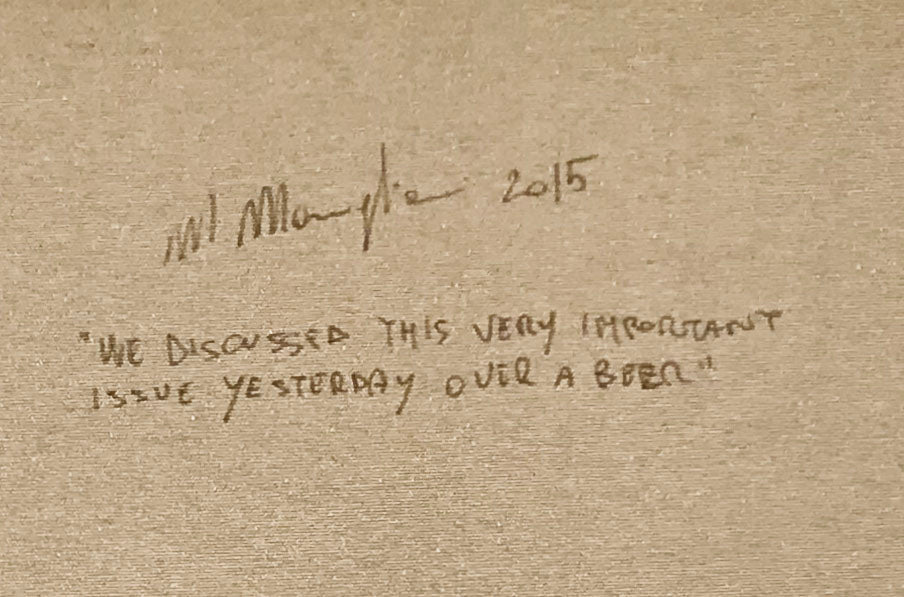 2015
"WE DISCUSSED THIS VERY IMPORTANT
ISSUE YESTERDAY OVER A BEER"